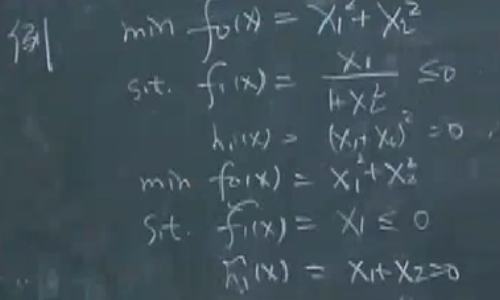 例 min f₀(x) = x₁² + x₂²
s.t. f₁(x) = x₁/(1+x₂²) ≤ 0
h₁(x) = (x₁+x₂)² = 0
min f₀(x) = x₁² + x₂²
s.t. f̃₁(x) = x₁ ≤ 0
h̃₁(x) = x₁+x₂=0